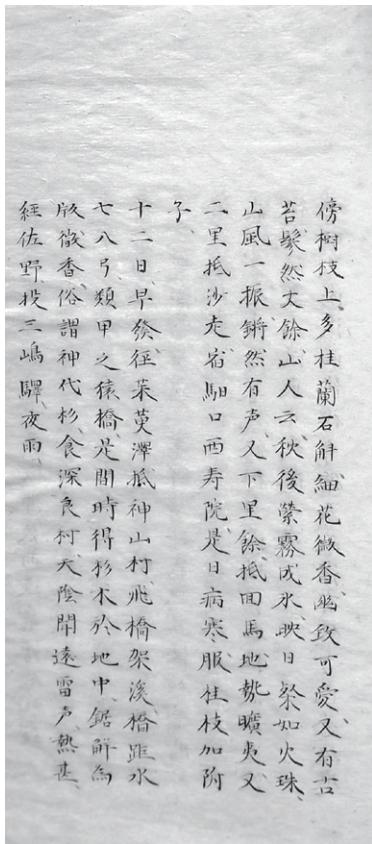 傍樹枝上、多桂蘭石斛、細花微香、幽致可愛、又有古
苔、鬖然丈餘、山人云、秋後縈霧成氷、映日粲如火珠、
山風一振、鏘然有声、又下里餘、抵回馬、地勢曠夷、又
二里抵沙走、宿湖口西寿院、是日病寒、服桂枝加附
子、
十二日、早發、径茱萸澤、抵神山村、飛橋架溪、橋距水
七八弓、類甲之猿橋、是間時得杉木於地中、鋸解為
版、微香、俗謂神代杉、食深良村、天陰、聞遠雷声、熱甚、
経佐野、投三嶋驛、夜雨、